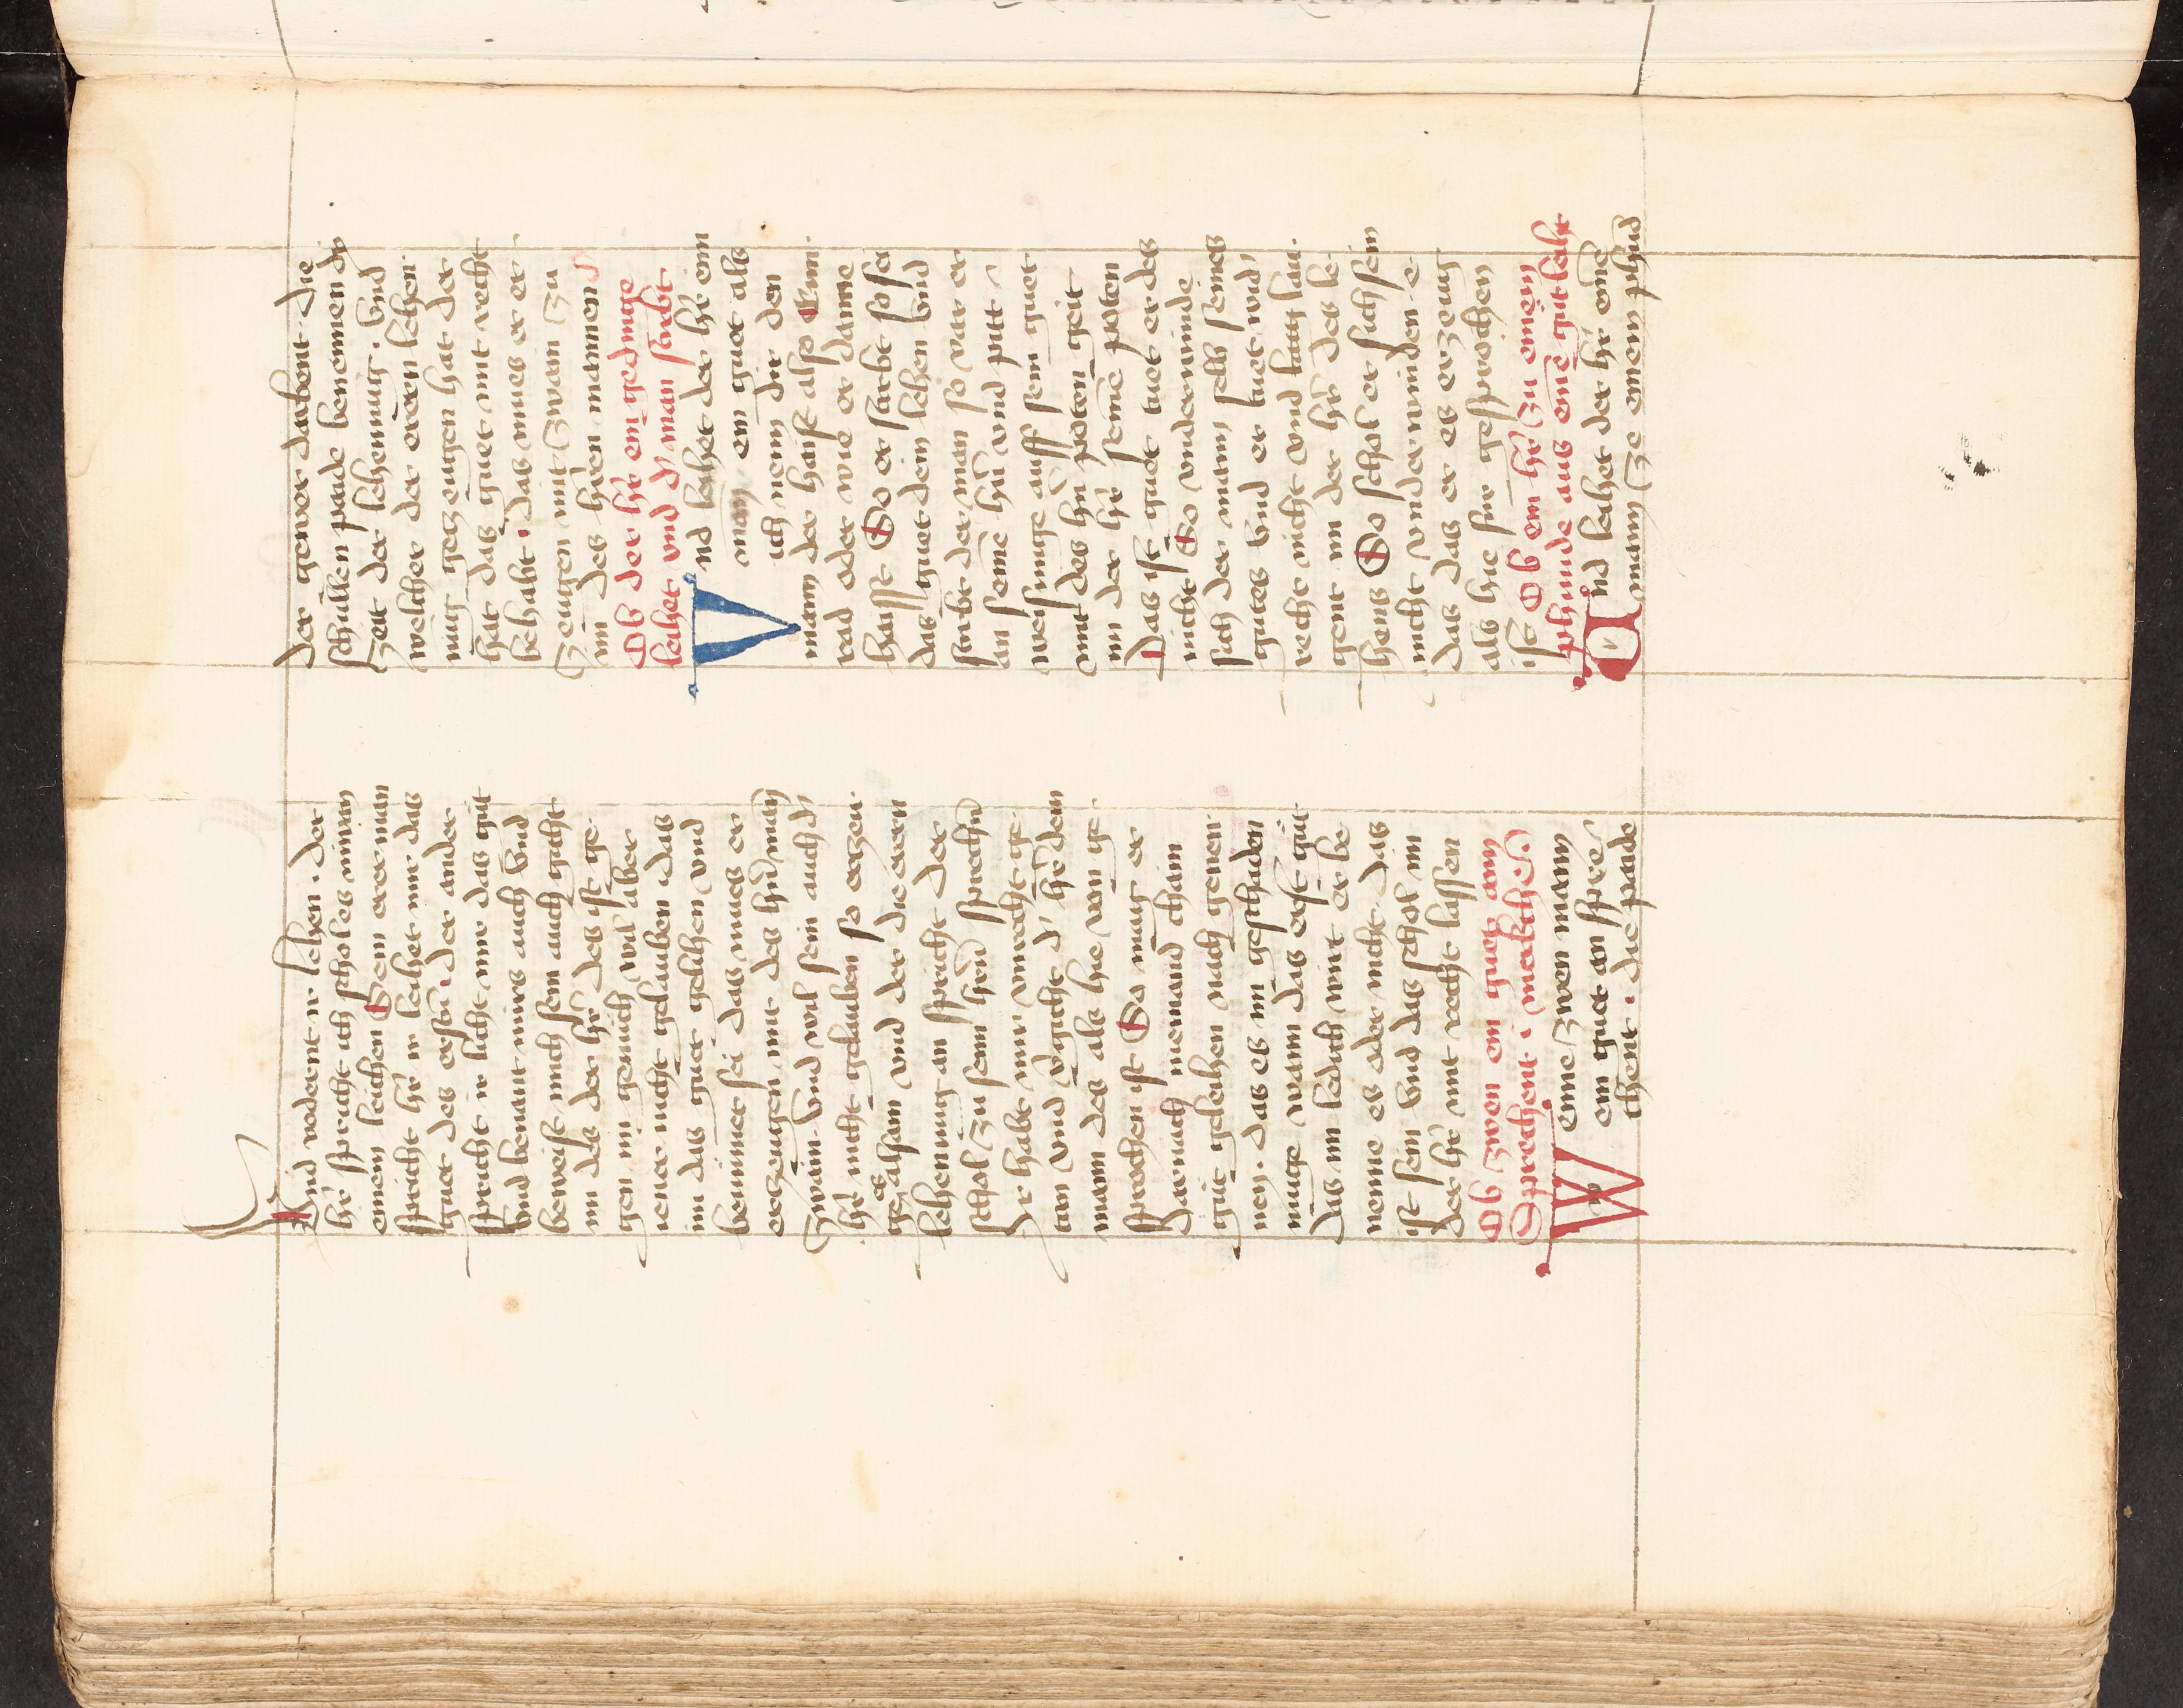 Und vodernt ir lehen · der
hr̄ spricht ich schol es minan
einem leichen Dem erer man
spricht hr̄ ir leihet mir das
guet des ersten · der ander
spricht ir licht mir das gut
vnd benant mirs auch vnd
beweist mich sein auch gicht
im deß der hr̄ des ist ge
gen im genuch wil aber
iener nicht gelauben · das
im das guet gelihen vnd
benimet sei das mues er
erzeugen mit des hr̄n man
zwain · vnd wil sein auch d̄
hr̄ nicht gelauben so erzeu
ge er alsam vnd der die erern
lehennug an spricht der
schol zu seim hr̄n sprechn̄
Hr̄ habt mir vnrecht ge
tan vnd v̄gicht d̄ hr̄ dem
mann des als hie von ge
sprochen ist So mag er
Darnach niemand chain
gut geleihen nach genen
nen · das es im geschaden
muge wann das erst gut
Das im ledich wirt er be
nenne es oder nicht · das
ist sein vnd das schol im
der hr̄ mit recht lassen
Ob zwen ein guet ann
Sprechent · i makthed
Wenne zwen mann
ein guet an spre
chent · die paide
der gewer darbent · die
schullen paide benennen dy
zeit der lehennug · vnd
welicher der erern lehen
nug gezeugen hat der
hat das guet mit recht
behabt · das mues er er
zeugen mit zwain zu
im des hr̄en mannen
Ob der hr̄ ein gedinge
leihet vnd d̄ man stirbt
Vnd leihet der hr̄ eim
man ein guet als
ich nenn dir den
mann der haist also Cun
rad oder wie er danne
haisst So er stirbt so sei
das guet dein lehen vnd
stirbt der man so var er
an seine hr̄n vnd pitt
weisunge auff sein guet
mit des hr̄n poten geit
im der hr̄ seine poten
Das ist guet tuet er des
nicht So vnderwinde
sich der mann selb seines
gutes vnd er tuet wid̄
recht nicht vnd laug lau
gent im der hr̄ des le
hens So schol er sich sein
nicht vnderwinden · e
das das er es erzeug
als hie vor gesprochen
ist · Ob ein hr̄ zu einem
phunde aus eine gut leiht
Und leihet der hr̄ eine
mann ze einem phūd